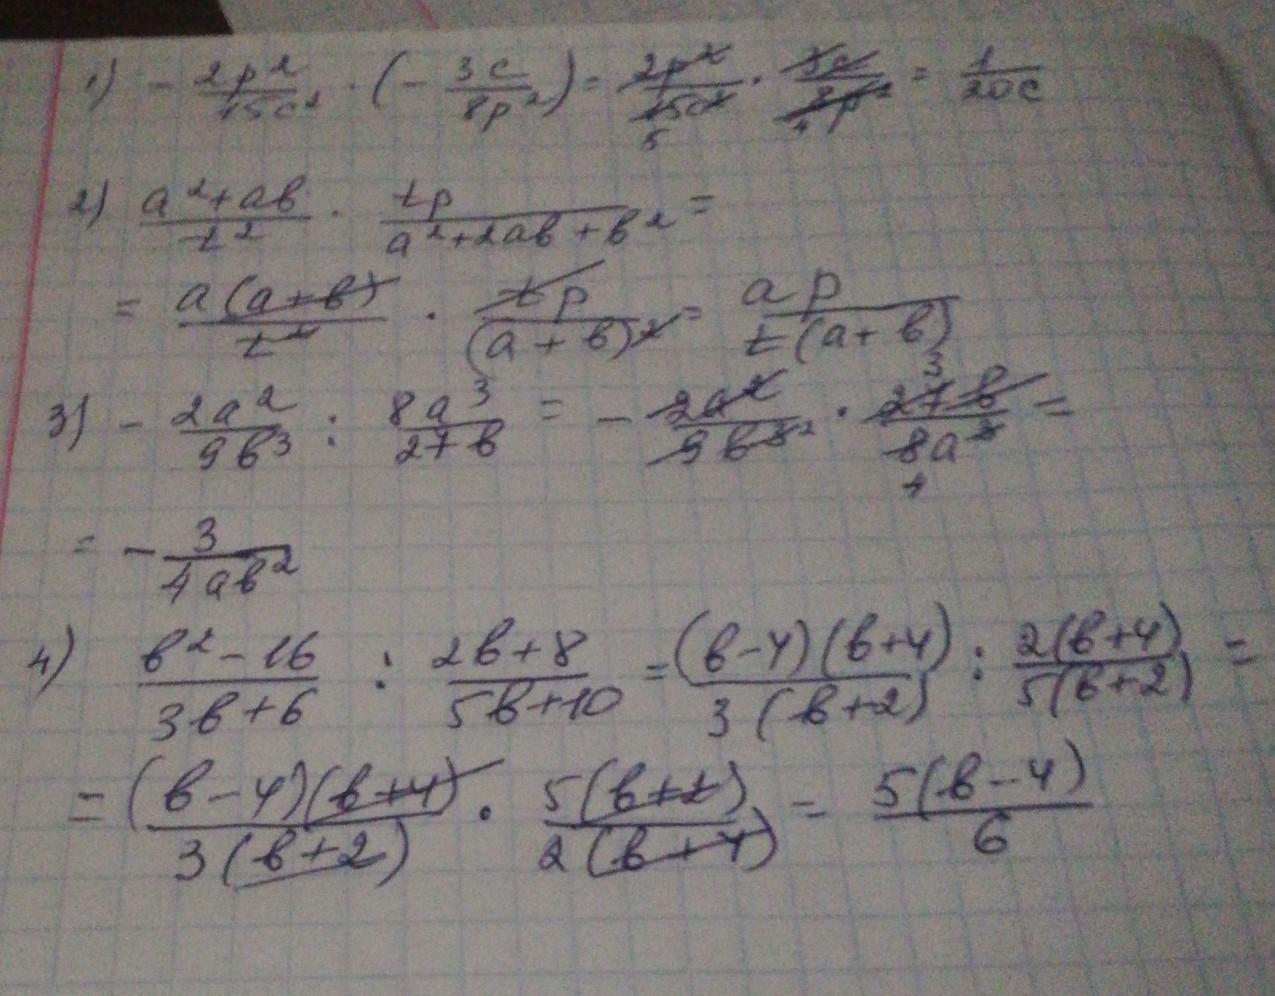 1) - 2p²/15c² · (- 3c/8p²) = 2p²/15c² · 3c/8p² = 1/20c
5 4
2) a²+ab/t² · tp/a²+2ab+b² =
= a(a+b)/t² · tp/(a+b)² = ap/t(a+b)
3) - 2a²/9b³ : 8a³/27b = - 2a²/9b³ ² · 27b/8a³ =
3
4
= - 3/4ab²
4) b²-16/3b+6 : 2b+8/5b+10 = (b-4)(b+4)/3(b+2) : 2(b+4)/5(b+2) =
= (b-4)(b+4)/3(b+2) · 5(b+2)/2(b+4) = 5(b-4)/6